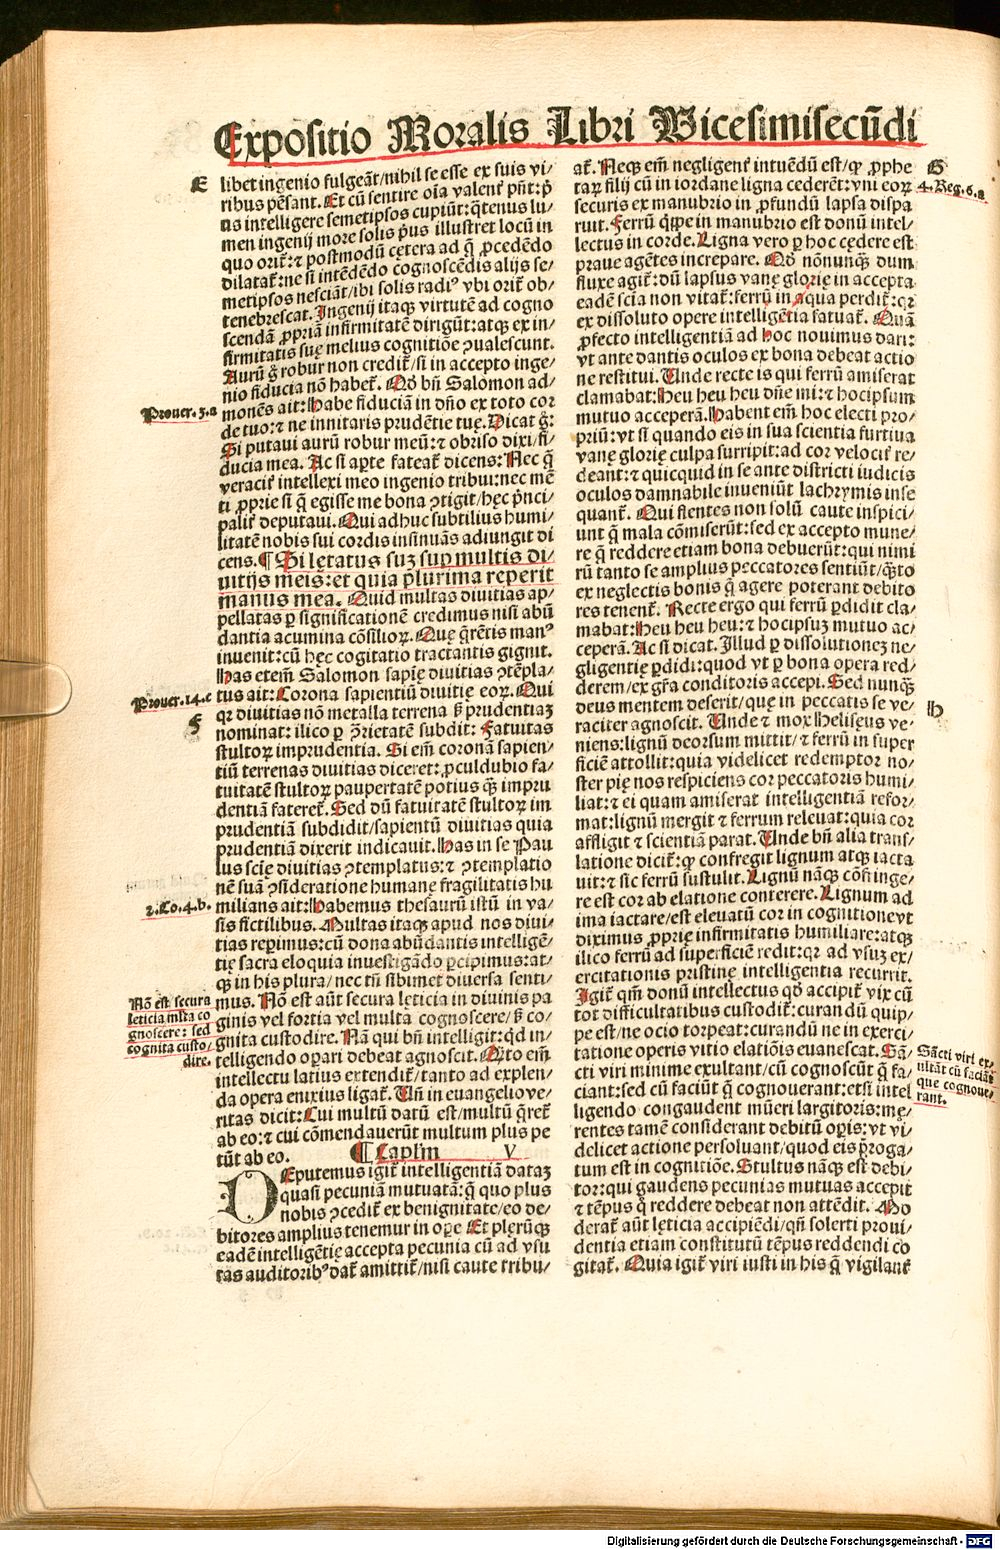 Expositio Moralis Libri Vicesimisecūdi
E
libet ingenio fulgeāt/nihil se esse ex suis vi/
ribus pēsant. Et cū sentire oīa valent pn̄t: p̄
us intelligere semetipsos cupiūt: q̄tenus lu/
men ingenij more solis p̄us illustret locū in
quo orit̄: ⁊ postmodū cętera ad q̄ ꝓcedēdo
dilatat̄: ne si intēdēdo cognoscēdis alijs se/
metipsos nesciāt/ibi solis radiꝰ vbi orit̄ ob/
tenebrescat. Ingenij itaqꝫ virtutē ad cogno
scendā ꝓpriā infirmitatē dirigūt: atqꝫ ex in/
firmitatis suę melius cognitiōe ꝯualescunt.
Aurū g̊ robur non credit̄/si in accepto inge/
nio fiducia nō habet̄. Qd̓ bn̄ Salomon ad/
Prouer.3.a
monēs ait: Habe fiduciā in dn̄o ex toto cor
de tuo: ⁊ ne innitaris prudētie tuę. Dicat g̊:
Si putaui aurū robur meū: ⁊ obriso dixi/fi/
ducia mea. Ac si apte fateat̄ dicens: Nec q̄
veracit̄ intellexi meo ingenio tribui: nec mē
ti ꝓprie si q̄ egisse me bona ꝯtigit/hęc p̄nci/
palit̄ deputaui. Qui adhuc subtilius humi/
litatē nobis sui cordis insinuās adiungit di
cens. ¶ Si lętatus suꝫ sup multis di/
uitijs meis: et quia p̄lurima reperit
manus mea. Quid multas diuitias ap/
pellatas ꝑ significationē credimus nisi abū
dantia acumina cōsilioꝝ. Quę q̄rētis manꝰ
inuenit: cū hęc cogitatio tractantis gignit.
Has etem̄ Salomon sapīe diuitias ꝯtēpla/
Prouer.14.c
tus ait: Corona sapientiū diuitię eoꝝ. Qui
F
qꝛ diuitias nō metalla terrena sꝫ prudentiaꝫ
nominat: ilico ꝑ ꝯ̄rietatē subdit: Fatuitas
stultoꝝ imprudentia. Si em̄ coronā sapien/
tiū terrenas diuitias diceret: ꝓculdubio fa/
tuitatē stultoꝝ paupertatē potius qꝫ impru
dentiā fateret̄. Sed dū fatuitatē stultoꝝ im
prudentiā subdidit/sapientū diuitias quia
prudentiā dixerit indicauit. Has in se Pau
lus scię diuitias ꝯtemplatus: ⁊ ꝯtemplatio
nē suā ꝯsideratione humanę fragilitatis hu
2.Co.4.b.
milians ait: Habemus thesaurū istū in va/
sis fictilibus. Multas itaqꝫ apud nos diui/
tias repimus: cū dona abūdantis intelligē/
tię sacra eloquia inuestigādo ꝑcipimus: at/
qꝫ in his plura/nec tn̄ sibimet diuersa senti/
Nō est secura
leticia mlta co
gnoscere: sed
cognita custo/
dire.
mus. Nō est aūt secura leticia in diuinis pa
ginis vel fortia vel multa cognoscere/sꝫ co/
gnita custodire. Nā qui bn̄ intelligit: qd̓ in/
telligendo opari debeat agnoscit. Qꝫto em̄
intellectu latius extendit̄/tanto ad explen/
da opera enixius ligat̄. Un̄ in euangelio ve/
ritas dicit: Cui multū datū est/multū q̄ret̄
ab eo: ⁊ cui cōmendauerūt multum plus pe
tūt ab eo. ¶ Caplm V
DEputemus igit̄ intelligentiā dataꝫ
quasi pecuniā mutuatā: q̄ quo plus
nobis ꝯcedit̄ ex benignitate/eo de/
bitores amplius tenemur in ope. Et plęrūqꝫ
eadē intelligētię accepta pecunia cū ad vsu
tas auditoribꝰ dat̄ amittit̄/nisi caute tribu/
at̄. Neqꝫ em̄ negligent̄ intuēdū est/qꝙ ꝓphe
G
taꝝ filij cū in iordane ligna cederēt: vni eoꝝ
4.Reg.6.a
securis ex manubrio in ꝓfundū lapsa dispa
ruit. Ferrū qꝓpe in manubrio est donū intel/
lectus in corde. Ligna vero ꝑ hoc cędere est
praue agētes increpare. Qd̓ nōnunqꝫ dum
fluxe agit̄: dū lapsus vanę glorię in accepta
eadē scīa non vitat̄: ferrū in aqua perdit̄: qꝛ
ex dissoluto opere intelligētia fatuat̄. Quā
ꝓfecto intelligentiā ad hoc nouimus dari:
vt ante dantis oculos ex bona debeat actio
ne restitui. Unde recte is qui ferrū amiserat
clamabat: Heu heu heu dn̄e mi: ⁊ hocipsum
mutuo acceperā. Habent em̄ hoc electi pro/
priū: vt si quando eis in sua scientia furtiua
vanę glorię culpa surripit: ad cor velocit̄ re/
deant: ⁊ quicquid in se ante districti iudicis
oculos damnabile inueniūt lachrymis inse
quant̄. Qui flentes non solū caute inspici/
unt q̄ mala cōmiserūt: sed ex accepto mune/
re q̄ reddere etiam bona debuerūt: qui nimi
rū tanto se amplius peccatores sentiūt/qꝫto
ex neglectis bonis q̄ agere poterant debito
res tenent̄. Recte ergo qui ferrū ꝑdidit cla/
mabat: Heu heu heu: ⁊ hocipsuꝫ mutuo ac/
ceperā. Ac si dicat. Illud ꝑ dissolutionez ne/
gligentię ꝑdidi: quod vt ꝑ bona opera red/
derem/ex gr̄a conditoris accepi. Sed nunqꝫ
deus mentem deserit/que in peccatis se ve/
H
raciter agnoscit. Unde ⁊ mox Heliseus ve/
niens: lignū deorsum mittit/⁊ ferrū in super
ficiē attollit: quia videlicet redemptor no/
ster pię nos respiciens cor peccatoris humi/
liat: ⁊ ei quam amiserat intelligentiā refor/
mat: lignū mergit ⁊ ferrum releuat: quia cor
affligit ⁊ scientiā parat. Unde bn̄ alia trans/
latione dicit̄: qꝙ confregit lignum atqꝫ iacta
uit: ⁊ sic ferrū sustulit. Lignū nāqꝫ cōfringe/
re est cor ab elatione conterere. Lignum ad
ima iactare/est eleuatū cor in cognitione vt
diximus ꝓprię infirmitatis humiliare: atqꝫ
ilico ferrū ad superficiē redit: qꝛ ad vsuꝫ ex/
ercitationis pristinę intelligentia recurrit.
Igit̄ qm̄ donū intellectus qd̓ accipit̄ vix cū
tot difficultatibus custodit̄: curandū quip/
pe est/ne ocio torpeat: curandū ne in exerci/
tatione operis vitio elatiōis euanescat. Sā/
Sācti viri ex/
ultāt cū faciūt
que cognoue/
rant.
cti viri minime exultant/cū cognoscūt q̄ fa/
ciant: sed cū faciūt q̄ cognouerant: etsi intel
ligendo congaudent mūeri largitoris: mę/
rentes tamē considerant debitū opis: vt vi/
delicet actione persoluant/quod eis p̄roga/
tum est in cognitiōe. Stultus nāqꝫ est debi/
tor: qui gaudens pecunias mutuas accepit
⁊ tēpus q̄ reddere debeat non attēdit. Mo
derat̄ aūt lęticia accipiēdi/qn̄ solerti proui/
dentia etiam constitutū tēpus reddendi co
gitat̄. Quia igit̄ viri iusti in his q̄ vigilant̄
Digitalisierung gefördert durch die Deutsche Forschungsgemeinschaft - DFG